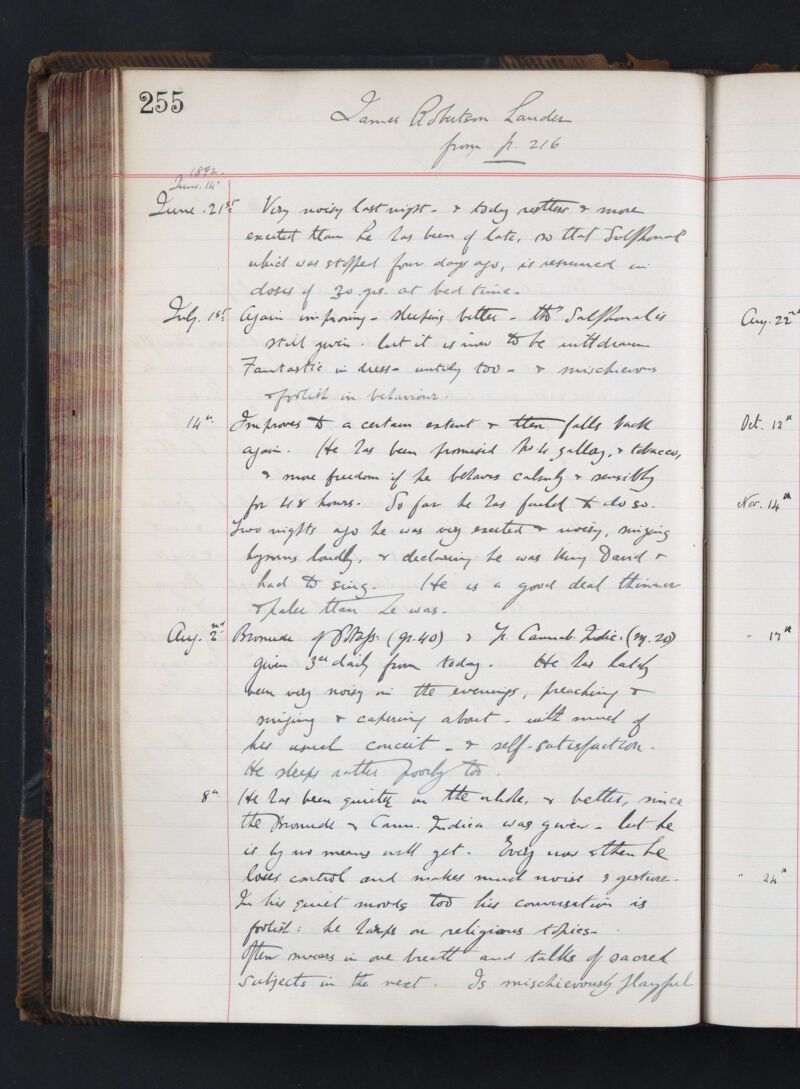 255
James Robertson Lauder
from p. 216
1892.
June. 14
June. 21st Very noisy last night - & today restless & more
excited than he has been of late, so that Sulphonal
which was stopped four days ago, is resumed in
doses of 30 grs. at bed time.
July. 1st Again improving - sleeping better - tho' Sulphonal is
still given. but it is now to be withdrawn
Fantastic in dress - untidy too - & mischievous
& foolish in behaviour.
14th Improves to a certain extent & then falls back
again. He has been promised No 4 gallery, & tobacco,
& more freedom if he behaves calmly & sensibly
for 48 hours. So far he has failed to do so.
Two nights ago he was very excited & noisy, singing
hymns loudly, & declaring he was King David &
had to sing. He is a good deal thinner
& paler than he was.
Aug. 2nd Bromide of Potass: (gr. 40) & Tr. Cannab. Indic. (m. 20)
given 3ce daily from today. He has lately
been very noisy in the evenings, preaching &
singing & capering about - with much of
his usual conceit - & self-satisfaction.
He sleeps rather poorly too.
8th He has been quieter on the whole, & better, since
the Bromide & Cann. Indica was given - but he
is by no means well yet. Every now & then he
loses control and makes much noise & gesture.
In his quiet moods too his conversation is
foolish: he harps on religious topics -
Often swears in one breath and talks of sacred
subjects in the next. Is mischievously playful
Aug. 22nd
Oct. 12th
Nov. 14th
" 17th
" 24th